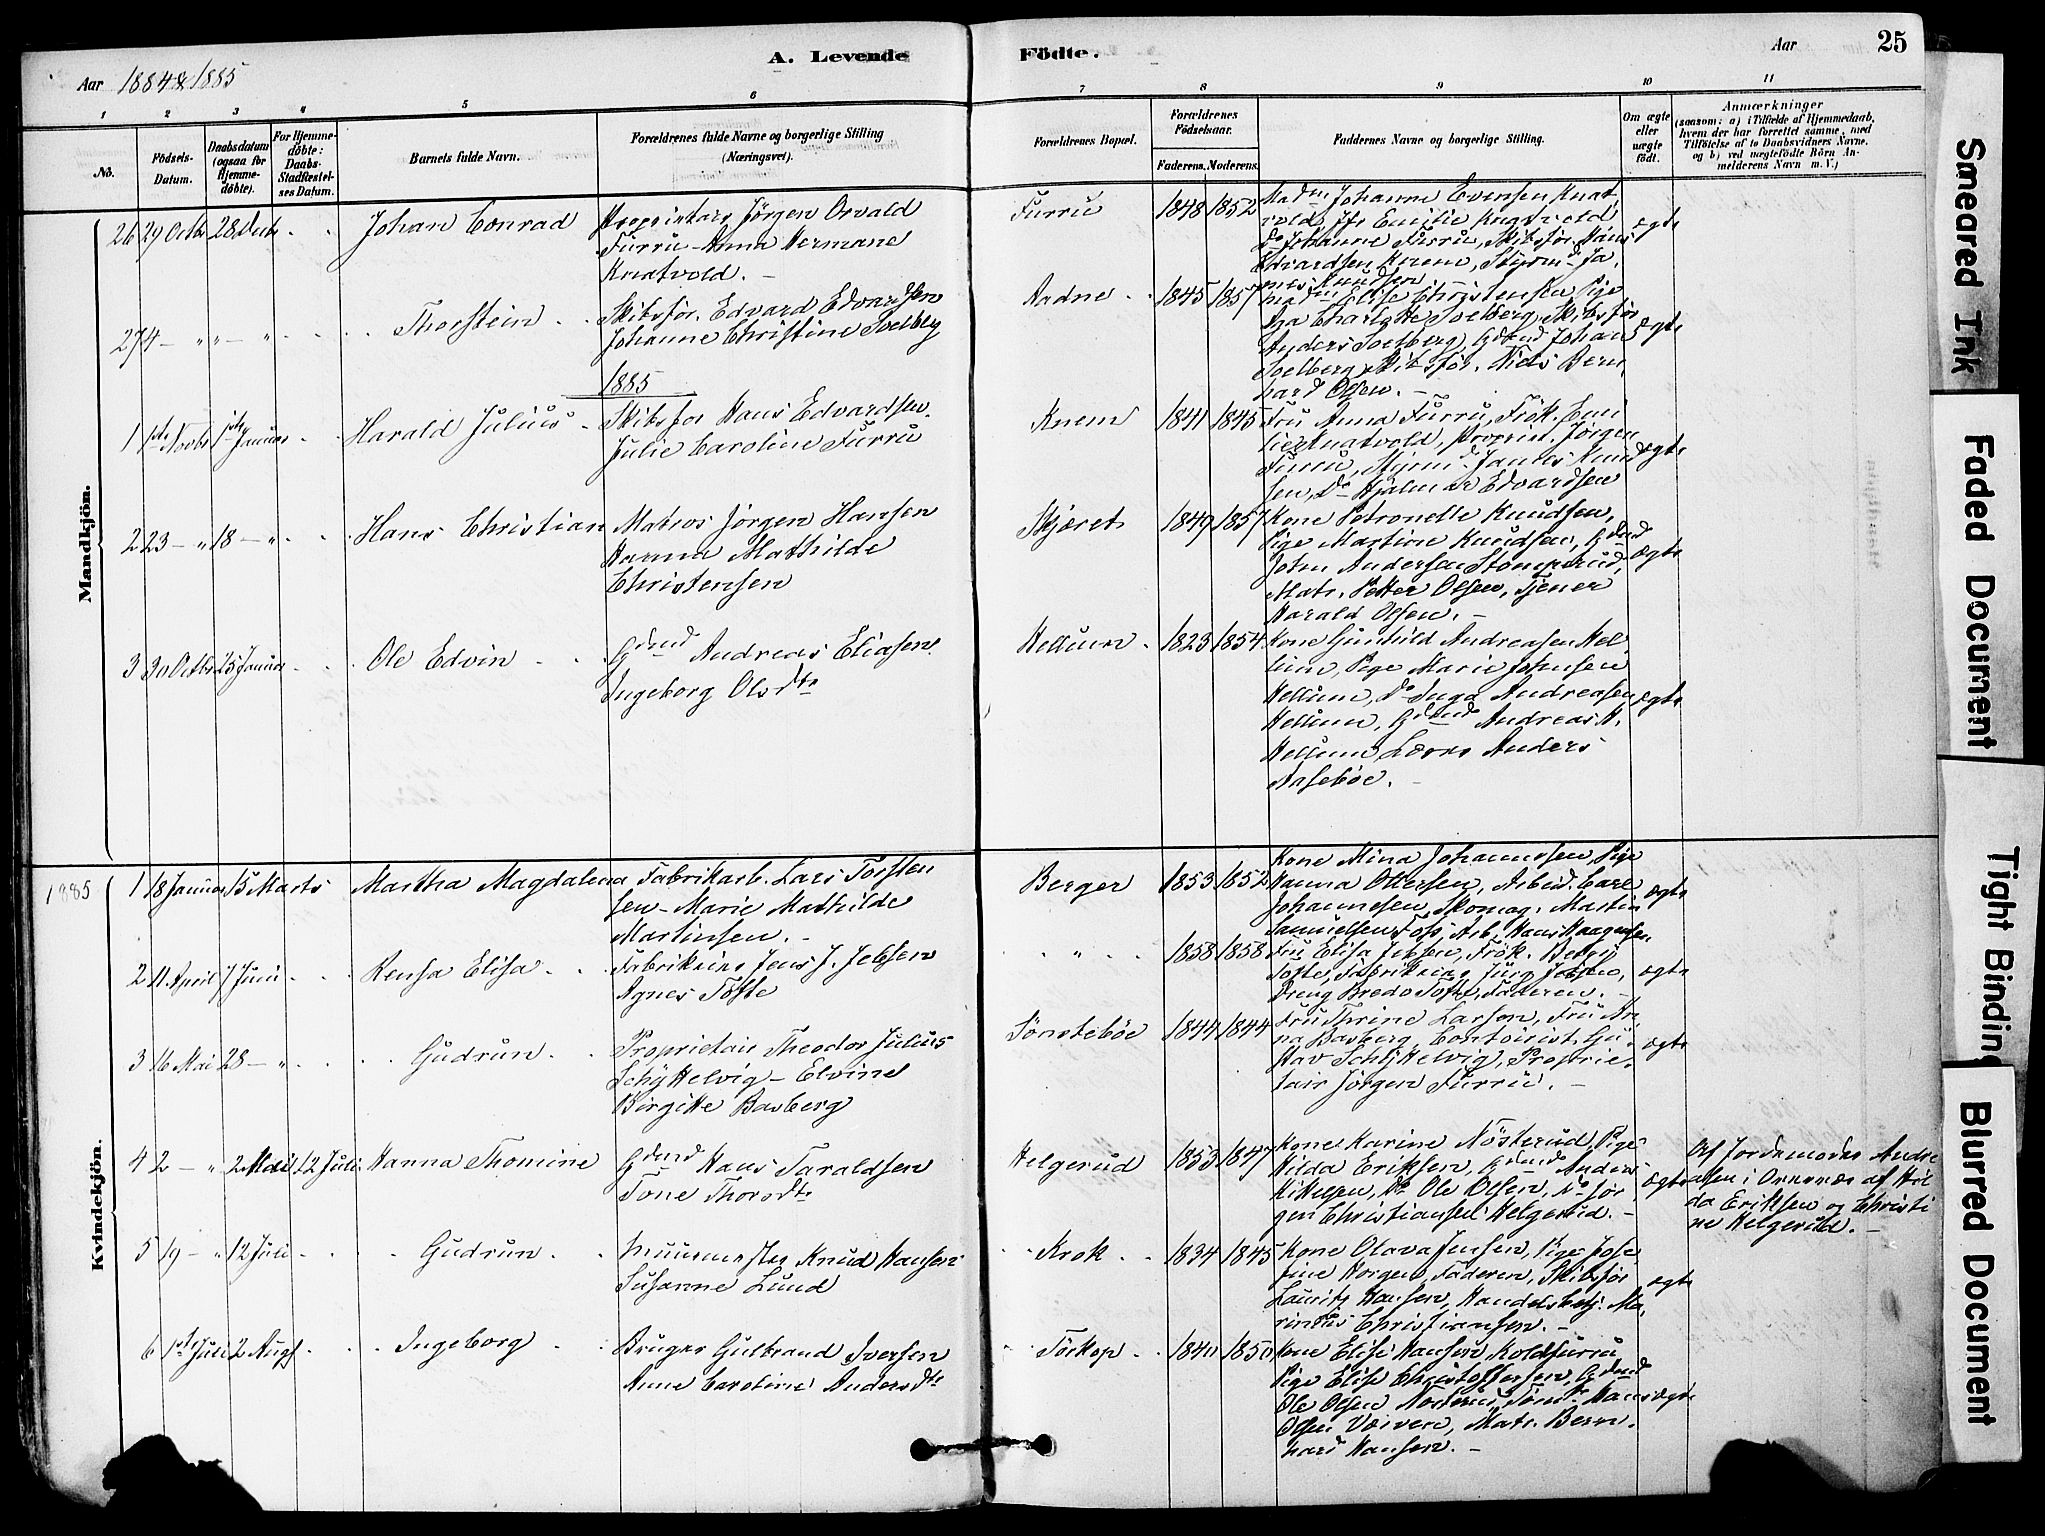 A. Levende Födte.
Aar 1884 & 1885
Aar 25
1 2 3 4 5 6 7 8 9 10 11
No.
Födsels-Datum.
Daabsdatum (ogsaa for Hjemme-döbte).
For Hjemme-döbte: Daabs-Stadfæstel-ses Datum.
Barnets fulde Navn.
Forældrenes fulde Navne og borgerlige Stilling (Næringsvei).
Forældrenes Bopæl.
Forældrenes Födselsaar.
Faderens. Moderens.
Faddernes Navne og borgerlige Stilling.
Om ægte eller uægte födt.
Anmærkninger
(saasom: a) i Tilfælde af Hjemmedaab, hvem der har forrettet samme, med Tilföielse af to Daabsvidners Navne, og b) ved uægtefödte Börn Anmelderens Navn m. V.)
Mandkjön.
26 29 Octbr 28 Decbr
Johan Conrad
Proprietær Jörgen Osvald
Furru - Anna Hermane
Knatvold. -
Furru 1848 1852
Madm Johanne Evensen Knat
vold, Fr. Emilie Knatvold
Do Johanne Furru, Skibsför. Hans
Edvardsen Knem, Styrmd Ja
mes Knudsen
ægte
27 4 - " " - "
Thorstein
Skibsför. Edvard Edvardsen
Johanne Christine Soelberg
Aadne 1845 1857
Madm Elise Christensen Pige
Charlotte Soelberg, Skibsför
Anders Soelberg, Gdmd Johan
Soelberg, Skibsför. Niels Bern
hard Olsen. -
ægte
1885
1 1ste Novbr 1ste Januar
Harald Julius
Skibsför Hans Edvardsen
Julie Caroline Furru
Knem 1841 1845
Fru Anna Furru, Frök. Emi
lie Knatvold, Propriet. Jörgen
Furru, Styrmd James Knud
sen, Do Hjalmar Edvardsen
ægte
2 23 - " 18 - "
Hans Christian
Matros Jörgen Hansen
Hanna Mathilde
Christensen
Skjæret 1849 1857
Kone Petronelle Knudsen,
Pige Martine Knudsen, Gdmd
John Andersen Stomperud,
Matr. Petter Olsen, Tjener
Harald Olsen. -
ægte
3 30 Octbr 25 Januar
Ole Edvin
Gdmd Andreas Eliasen
Ingeborg Olsdtr
Hellum 1823 1854
Kone Gunhild Andreasen Hel
lum, Pige Marie Johnsen
Hellum, Do Inga Andreasen
Hellum, Gdmd Andreas H.
Hellum, Anders
Aaseböe. -
ægte
Kvindekjön.
1885
1 18 Januar 15 Marts
Martha Magdalena
Fabrikarb. Lars Torsten
sen - Marie Mathilde
Martinsen. -
Berger 1853 1852
Kone Mina Johannesen, Pige
Hanna Ottersen, Arbeid. Carl
Johannesen, Skomag. Martin
Samuelsen Foss Arb. Hans Haagensen
ægte
2 11 April 7 Juni
Rensa Elisa
Fabrikeier Jens J. Jebsen
Agnes Tofte
" 1858 1858
Fru Elisa Jebsen, Frök. Betzy
Tofte, Fabrikeier Jürg Jebsen,
Dreng Bredo Tofte, Faderen. -
ægte
3 16 Mai 28 - "
Gudrun
Proprietair Theodor Julius
Schÿttelvig - Elvine
Birgitte Basberg
Sönsteböe 1844 1844
Fru Thrine Larson, Fru An
na Basberg, Contorist Gu
stav Schÿttelvig, Proprie
tair Jörgen Furru. -
ægte
4 2 - " 2 Mai 12 Juli
Hanna Thomine
Gdmd Hans Taraldsen
Tone Thorsdtr
Helgerud 1853 1847
Kone Karine Nösterud, Pige
Hilda Eriksen, Gdmd Anders
Do Ole Olsen, Do Jör
gen Christiansen Helgerud. -
ægte
Af Jordemoder Andre
asen i Ornenæs af Hil
da Eriksen og Christi
ne Helgerud. -
5 19 - " 12 Juli
Gudrun
Muurmester Knud Hansen
Susanne Lund
Krok 1834 1845
Kone Olava Jensen, Pige Jose
fine Horgen, Faderen, Skibsför
Lauritz Hansen, Handelsbetj. Ma
rinius Christiansen. -
ægte
6 1ste Juli 2 Augs
Ingeborg
Bruger Gulbrand Iversen
Anne Caroline Andersdtr
Törkop 1840 1850
Kone Elise Hansen Koldfurru
Pige Elise Christoffersen, Gdmd
Ole Olsen Nösterud, Tömr Hans
Olsen Værven, Matr. Bern
hard Hansen. -
ægte
Smeared Ink
Faded Document
Tight Binding
Blurred Document